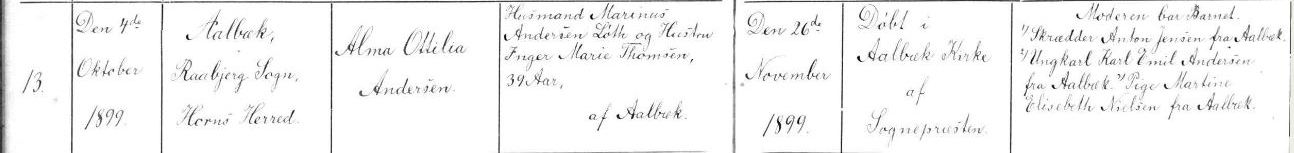 13.
Den 4de
Oktober
1899.
Aalbæk,
Raabjerg Sogn,
Horns Herred.
Alma Ottilia
Andersen.
Husmand Marinus
Andersen Löth og Hustru
Inger Marie Thomsen,
39 Aar,
af Aalbæk.
Den 26de
November
1899.
Døbt i
Aalbæk Kirke
af
Sognepræsten.
Moderen bar Barnet.
1/ Skrædder Anton Jensen fra Aalbæk.
2/ Ungkarl Karl Emil Andersen
fra Aalbæk. 3/ Pige Martine
Elisebeth Nielsen fra Aalbæk.